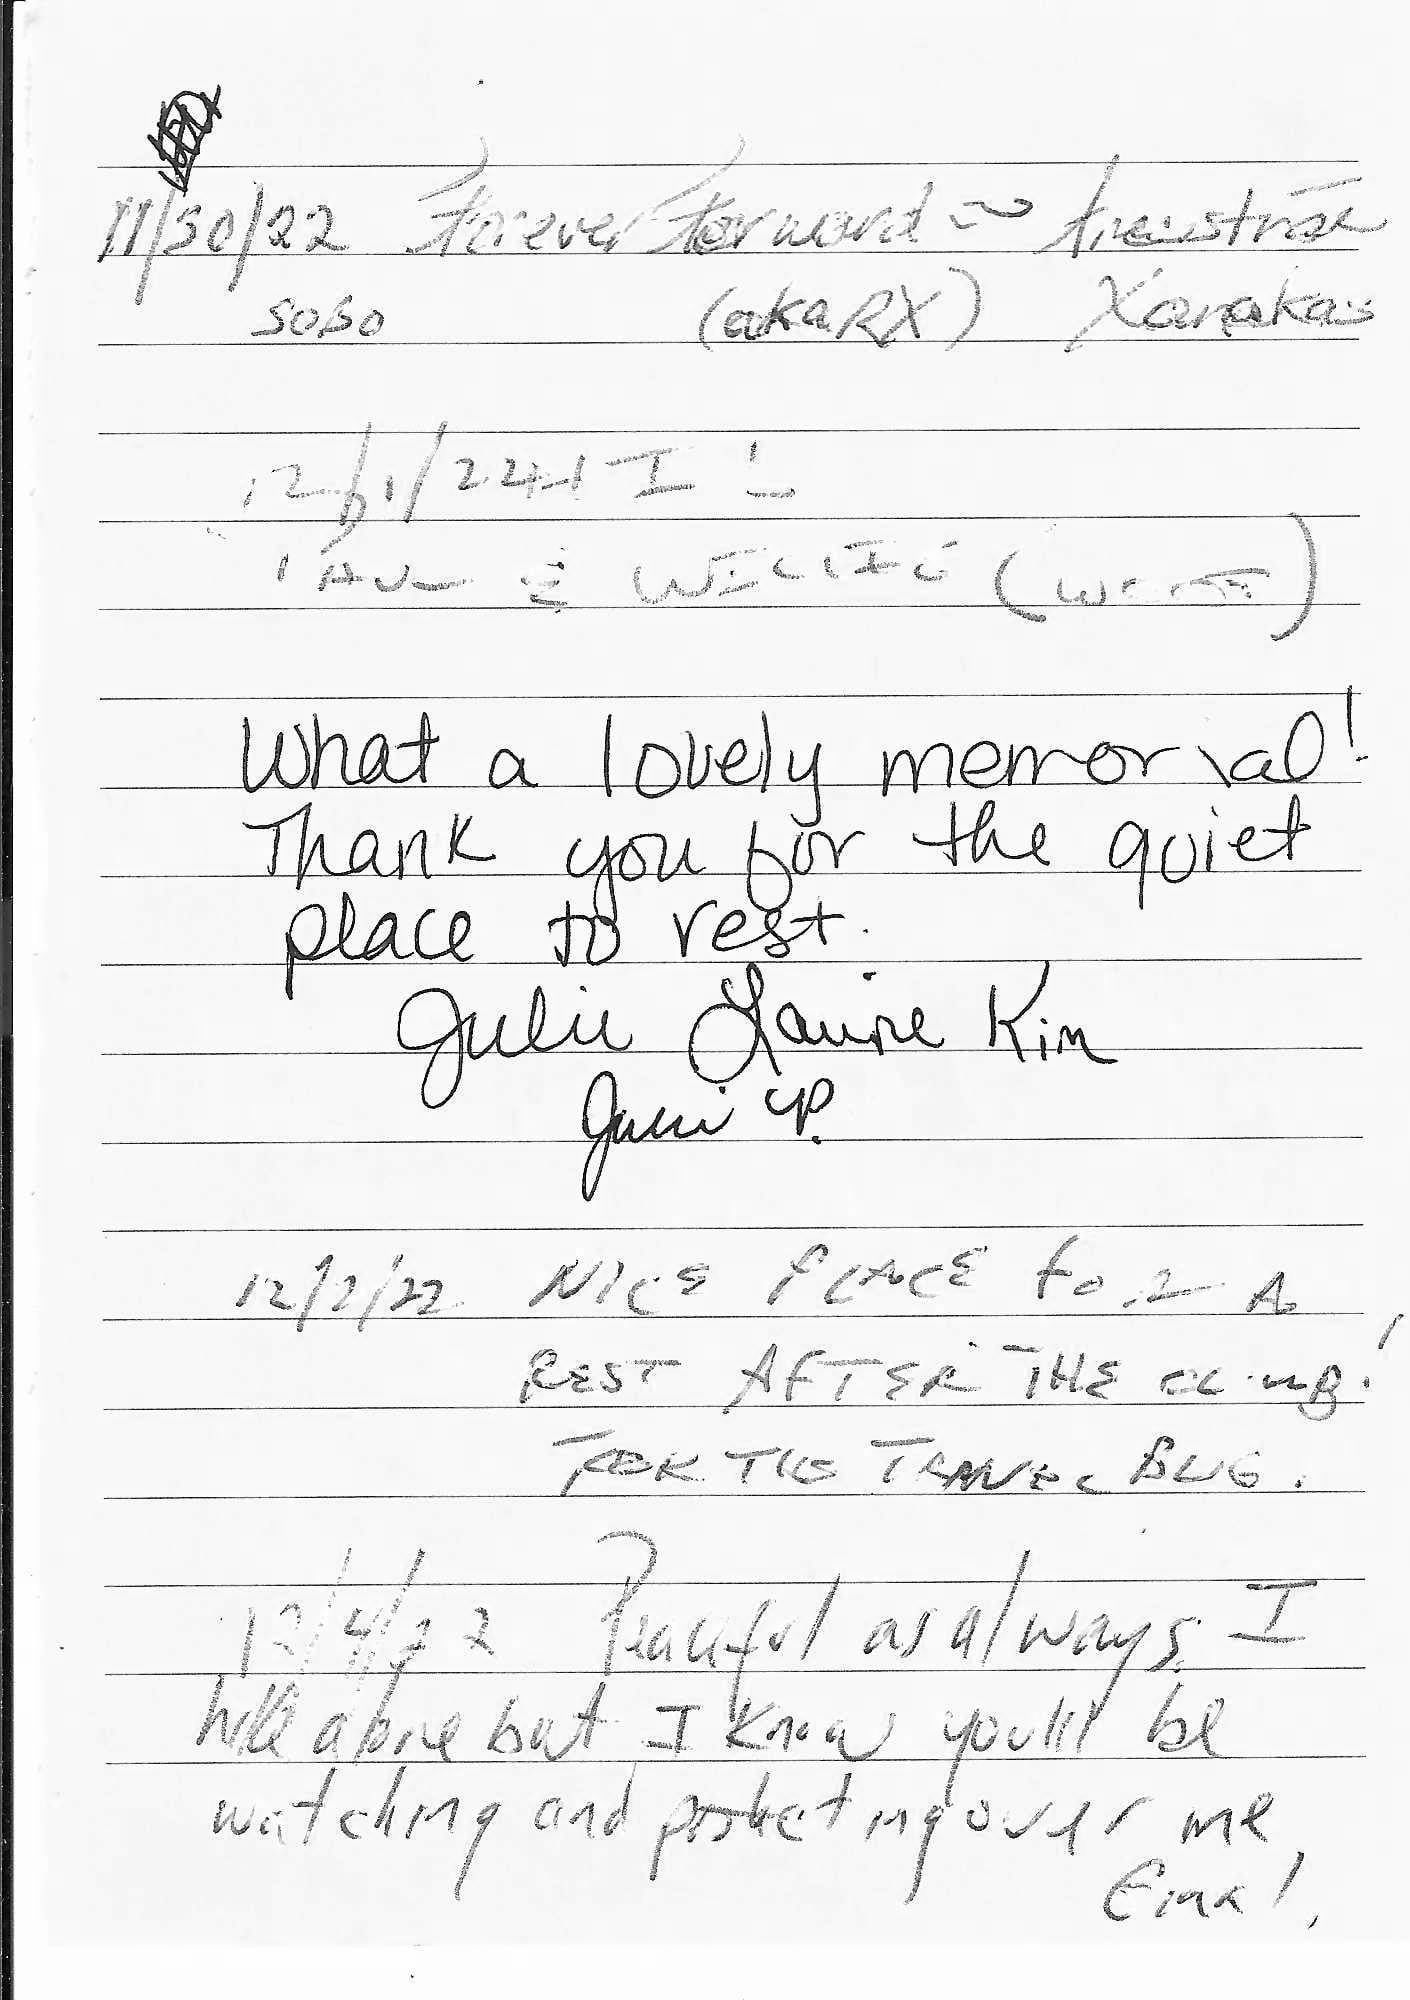 11/30/22 Forever Forward ~
SOBO (aka RX) Xanakas
12/1/22
& WILLIE
What a lovely memorial!
Thank you for the quiet
place to rest.
Julie Laurie Kim
12/2/22 NICE PLACE FOR A
REST AFTER THE CLIMB!
FOR THE TRAVEL BUG.
12/4/22 Peaceful as always. I
hike alone but I know you'll be
watching and over me